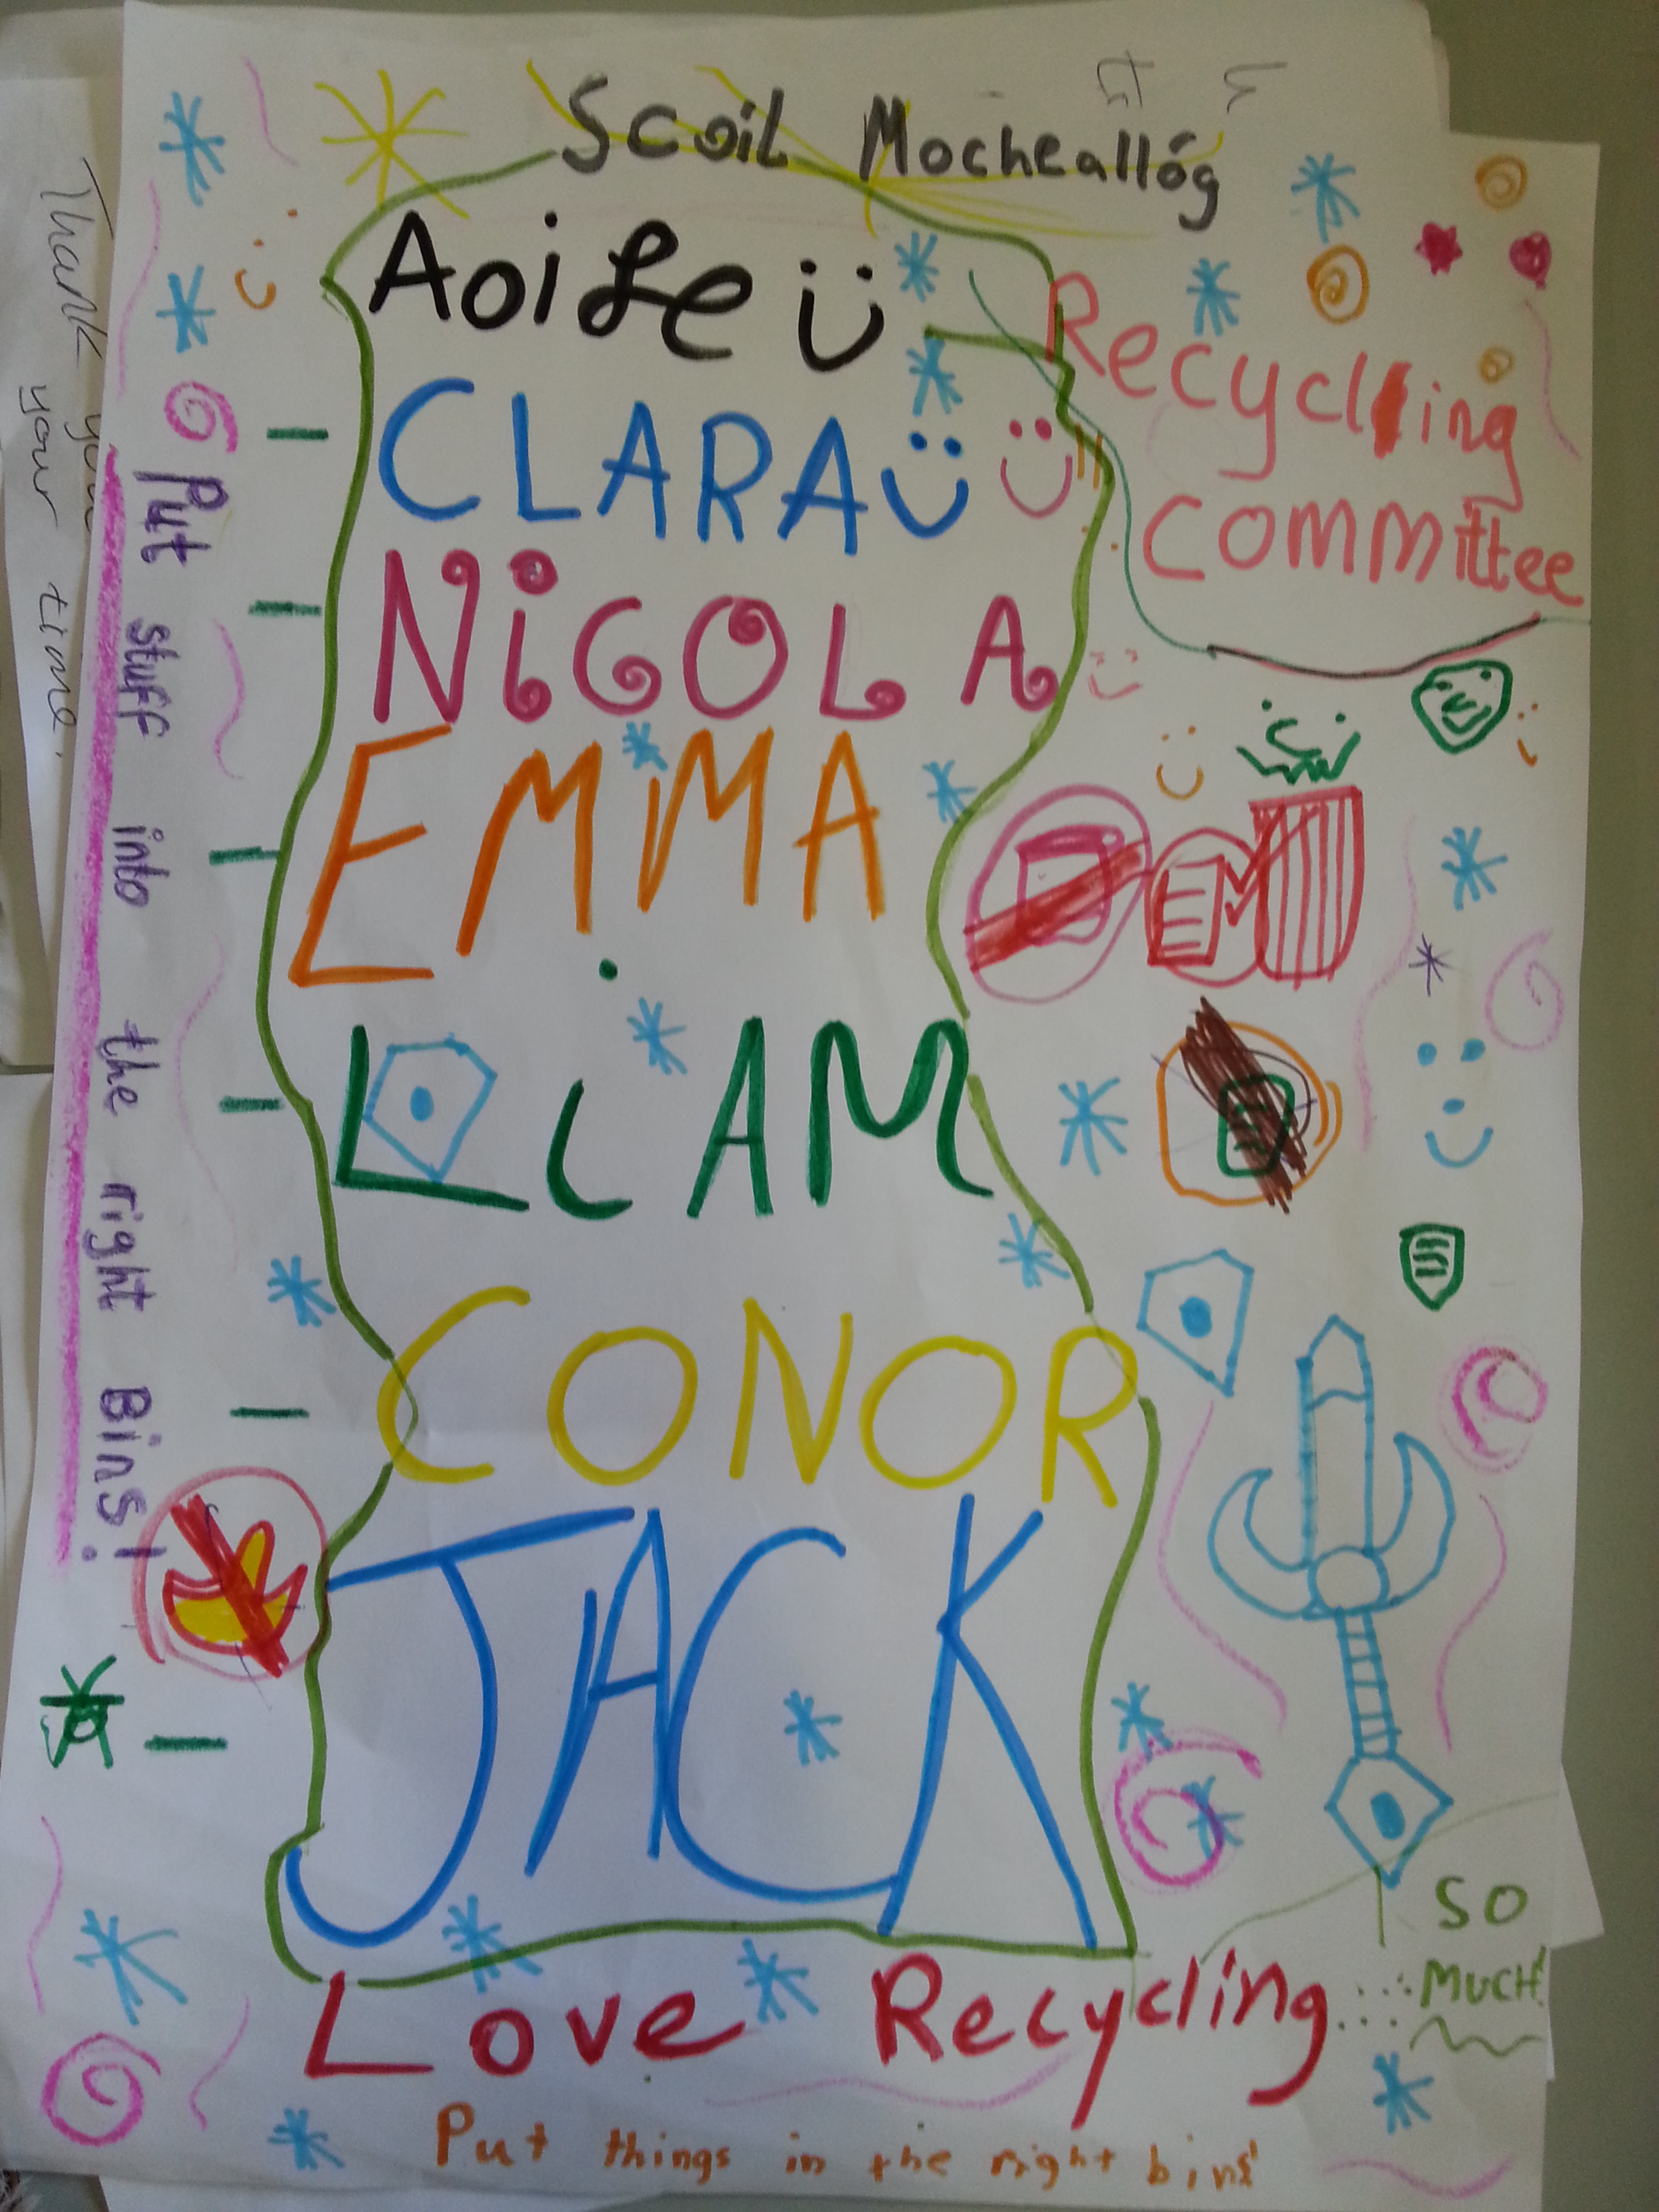 Scoil Mocheallóg
Aoife
CLARA
NiCOLA
EMMA
LiAM
CONOR
JACK
Recycling
Committee
Put stuff into the right Bins!
Love Recycling
SO
MUCH!
Put things in the right bins
Thank you
your time.